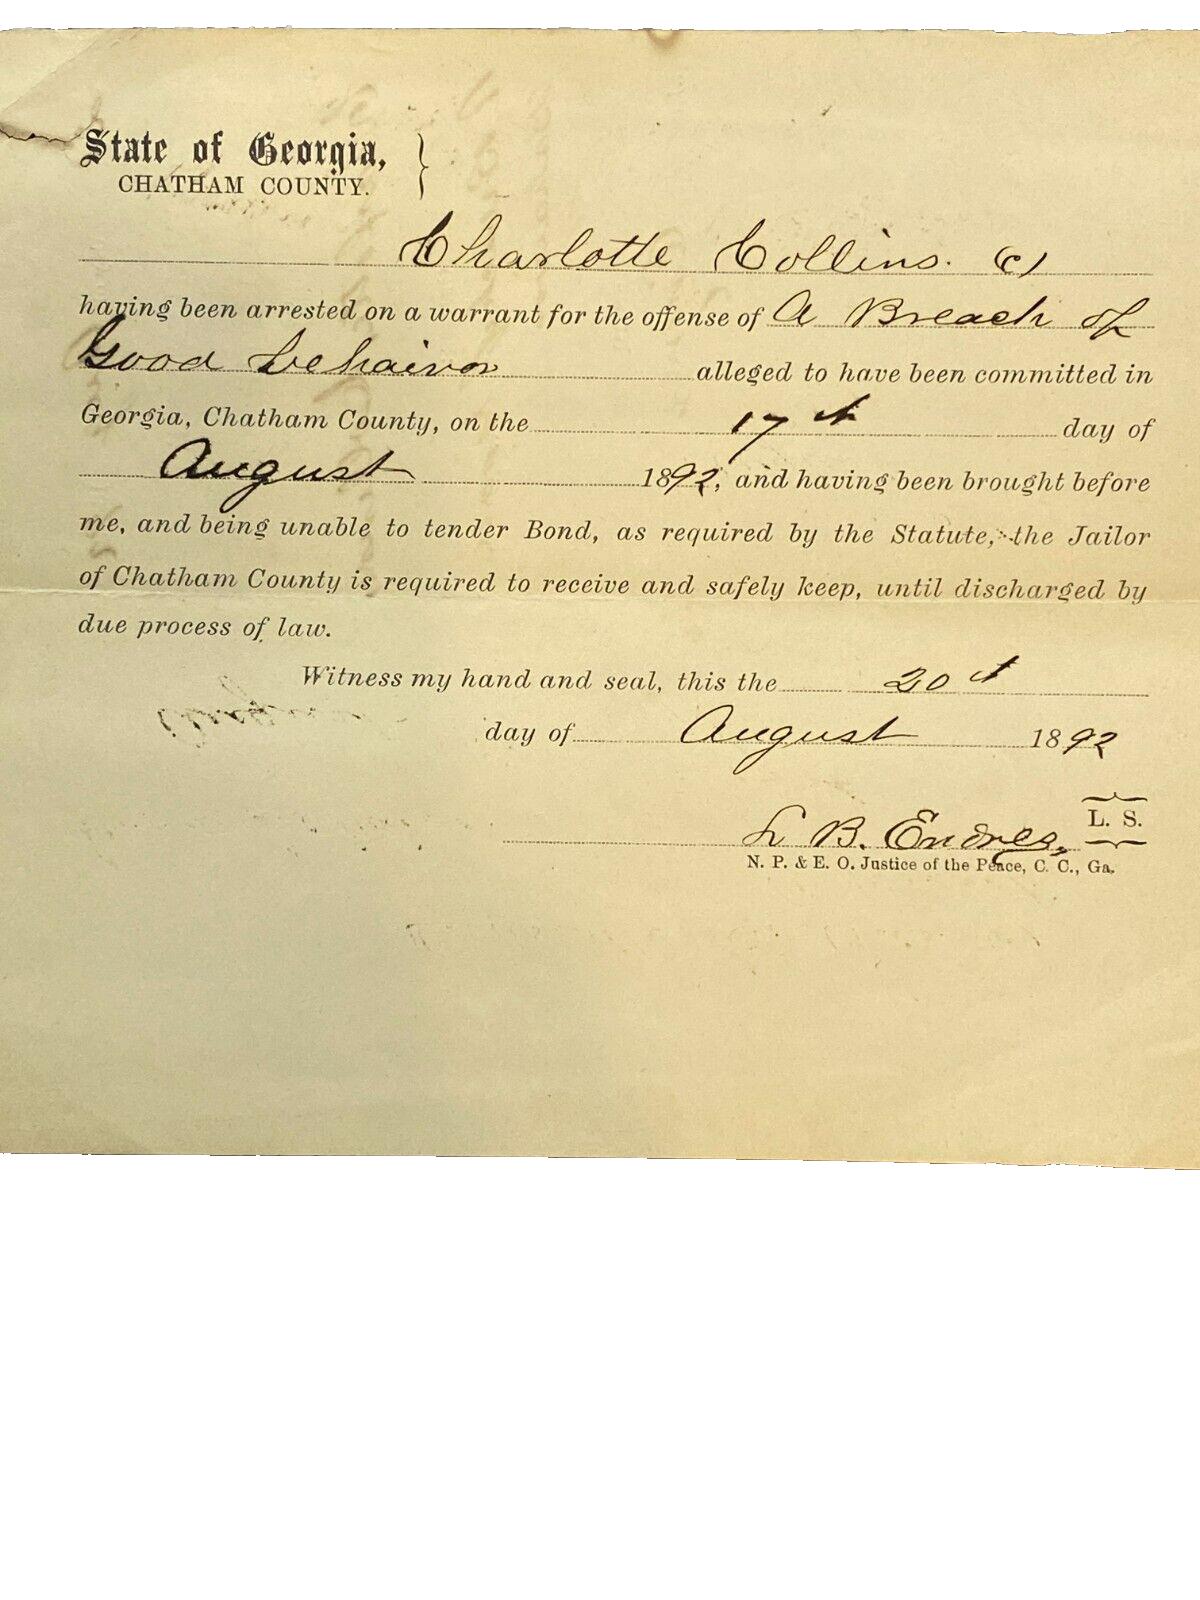 State of Georgia, }
CHATHAM COUNTY.
Charlotte Collins. (c)
having been arrested on a warrant for the offense of A Breach of
Good behaivor alleged to have been committed in
Georgia, Chatham County, on the 17th day of
August 1892, and having been brought before
me, and being unable to tender Bond, as required by the Statute, the Jailor
of Chatham County is required to receive and safely keep, until discharged by
due process of law.
Witness my hand and seal, this the 20th
day of August 1892
L B. Endres, L. S.
N. P. & E. O. Justice of the Peace, C. C., Ga.